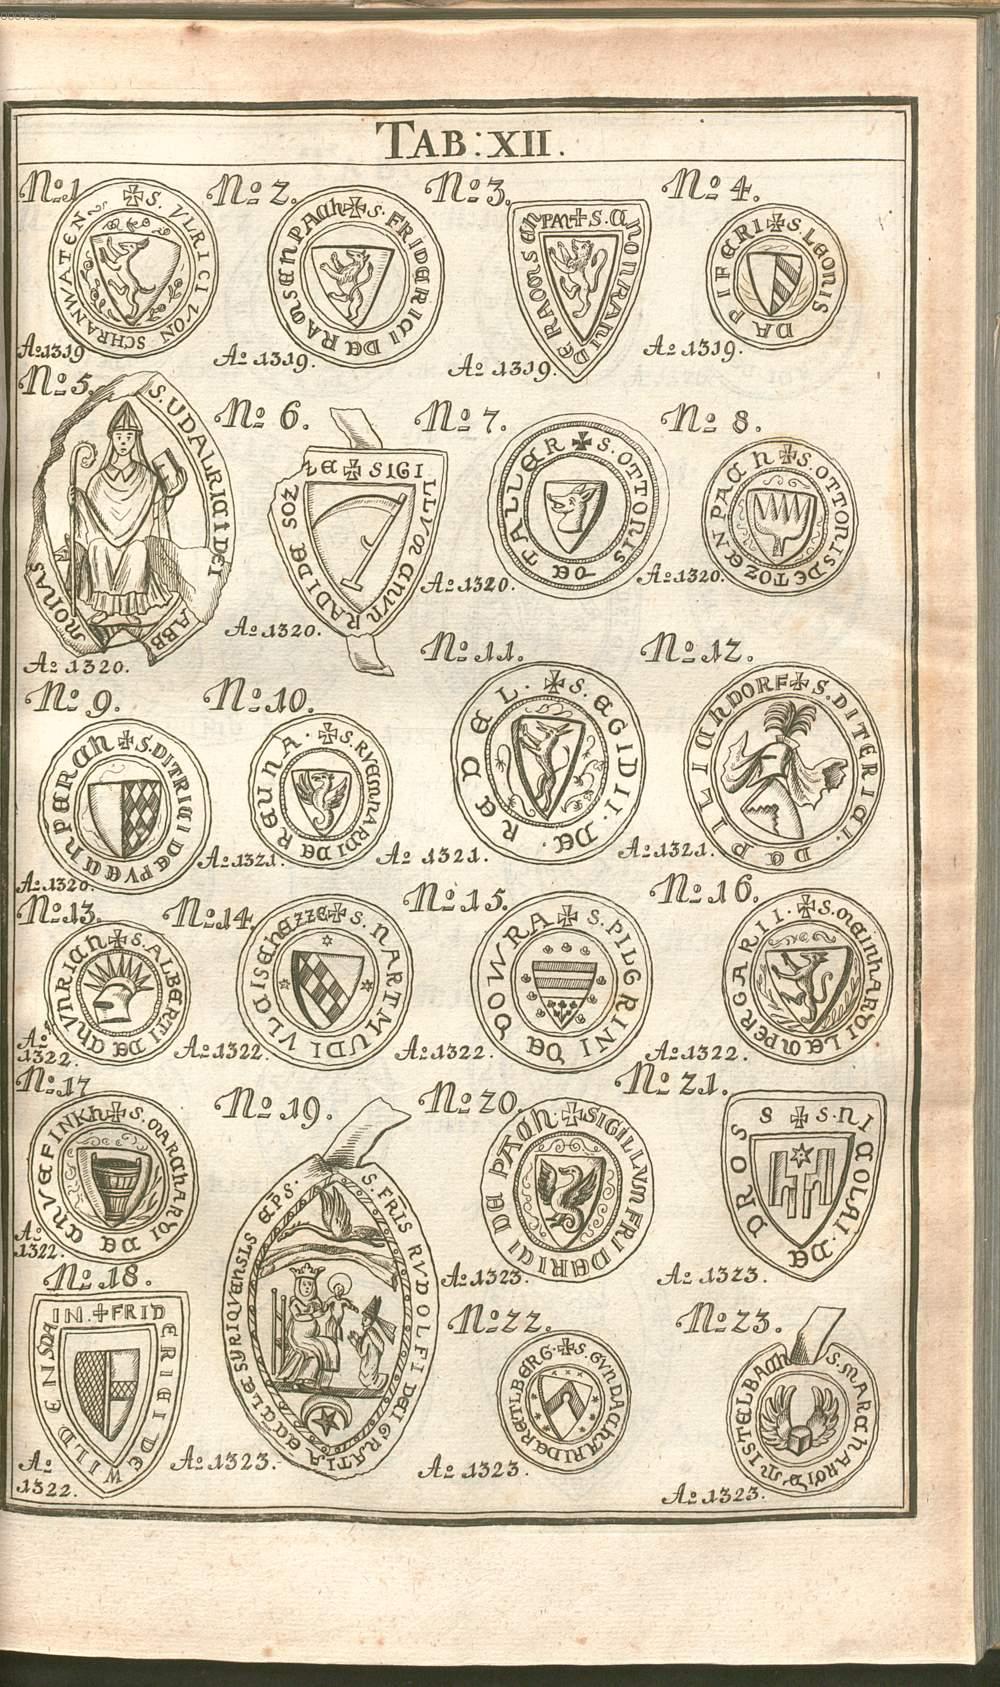 TAB: XII.
No: 1
✠ S. VLRICI VON SCHRANWATEN
Ao: 1319
No: 2.
✠ S. FRIDERICI DE RAMSENPACH
Ao: 1319.
No: 3.
✠ S. CHONRADI DE RAMSENPA
Ao: 1319.
No: 4.
✠ S. LEONIS DAPIFERI
Ao: 1319.
No: 5.
S. UDALRICI DEI
ABB
MONAS
Ao: 1320.
No: 6.
✠ SIGILLVM CHVNRADI DE SOZ
Ao: 1320.
No: 7.
✠ S. OTTONIS DE TALLER
Ao: 1320.
No: 8.
✠ S. OTTONIS DE TOZENPACH
Ao: 1320.
No: 9.
✠ S. DITRICI DE PVCHPERCH
Ao: 1320.
No: 10.
DE REUNA.
Ao: 1321.
No: 11.
✠ S. EGIDII. DE. REDEL.
Ao: 1321.
No: 12.
✠ S. DITERICI. DE PILICHDORF
Ao: 1321.
No: 13.
✠ S. ALBERTI DE CHVNRICH
Ao: 1322.
No: 14.
✠ S. HARTMUDI
Ao: 1322.
No: 15.
✠ S. PILGRINI DE
Ao: 1322.
No: 16.
✠ S. MEINHARDI LEMPERGARII.
Ao: 1322.
No: 17
✠ S. MARCHARDI DE
Ao: 1322.
No: 18.
✠ FRIDERICI DE WILDE
Ao: 1322.
No: 19.
S. FRIS RVDOLFI DEI GRATIA ECCLE SYRIQUENSIS EPS.
Ao: 1323.
No: 20.
✠ SIGILLVM FRIDERICI DE PACH.
Ao: 1323.
No: 21.
✠ S. NICOLAI. DE DROSS
Ao: 1323.
No: 22.
✠ S. GVNDACHARI DE RETLBERG.
Ao: 1323.
No: 23.
S. MARCHARDI D MISTELBACH
Ao: 1323.